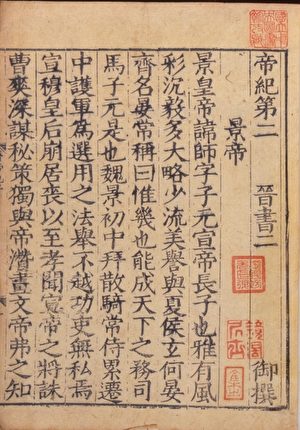 帝紀第二 晉書二
御撰
景帝
景皇帝諱師字子元宣帝長子也雅有風
彩沉毅多大略少流美譽與夏侯玄何晏
齊名晏常稱曰惟幾也能成天下之務司
馬子元是也魏景初中拜散騎常侍累遷
中護軍為選用之法舉不越功吏無私焉
宣穆皇后崩居喪以至孝聞宣帝之將誅
曹爽深謀秘策獨與帝潛畫文帝弗之知